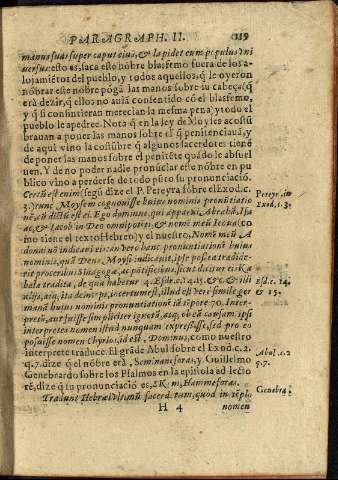 PARAGRAPH. II. 119
manus suas super caput eius, & lapidet eum populus vni
uersus: esto es, saca este hōbre blasfemo fuera de los a-
lojamiētos del pueblo, y todos aquellos, q̃ le oyeron
nōbrar este nōbre pōgā las manos sobre su cabeça (q̃
erà dezir, q̃ ellos no auiā consentido cō el blasfemo,
y q̃ si consintieran merecian la mesma pena) y todo el
pueblo le apedree. Nota q̃ en la ley de Moyses acostū
brauan a poner las manos sobre el q̃ penitenciauā, y
de aqui vino la costūbre q̃ algunos sacerdotes tienē
de poner las manos sobre el penitēte quādo le absuel
uen. Y de no poder nadie pronūciar este nōbre en pu
blico vino a perderse de todo pūto su pronunciació.
Certū est enim (segū dize el P. Pereyra sobre el Exod. c.
3.) tunc Moysem cognouisse huius nominis pronūtiatio
nē, cū dictū est ei. Ego dominus, qui apparui Abrahā, Isa
ac, & Iacob in Deo omnipotēti, & nomē meū Ieoua (co
mo tiene el texto Hebreo) y el nuestro. Nomē meū A-
donai nō indicaui eis: an verò hanc pronuntiationē huius
nominis, quā Deus Moysi indicauit, ipse postea tradide-
rit proceribus Sinagogæ, ac pōtificibus, sicut dicitur ei Ka
bala tradita, de qua habetur 4. Esdræ. c. 14. 15. & c. & ili
usq̃;
mana huius nominis pronuntiationē iā tēpore 70. Inter-
pretū, aut fuisse simpliciter ignotā, atq; ob eā causam ipsos
interpretes nomen istud nunquam expressisse, sed pro eo
posuisse nomen Chyrios, id est, Dominus, como nuestro
interprete traduce. El grāde Abul sobre el Exod. c. 2.
q. 7. dize que el nōbre erà, Semnamforas, y Guillelmo
Genebrardo sobre los Psalmos en la epistola ad lecto
rē, dize q̃ su pronunciació es, SKem, Hammeforas.
Tradunt Hebræi olim à sacerd. tam, quod in tēplo
H 4 nomen
Pereyr. in
Exod. c. 3.
Esd. c. 14.
& 15.
Abul. c. 2
q. 7.
Genebra.